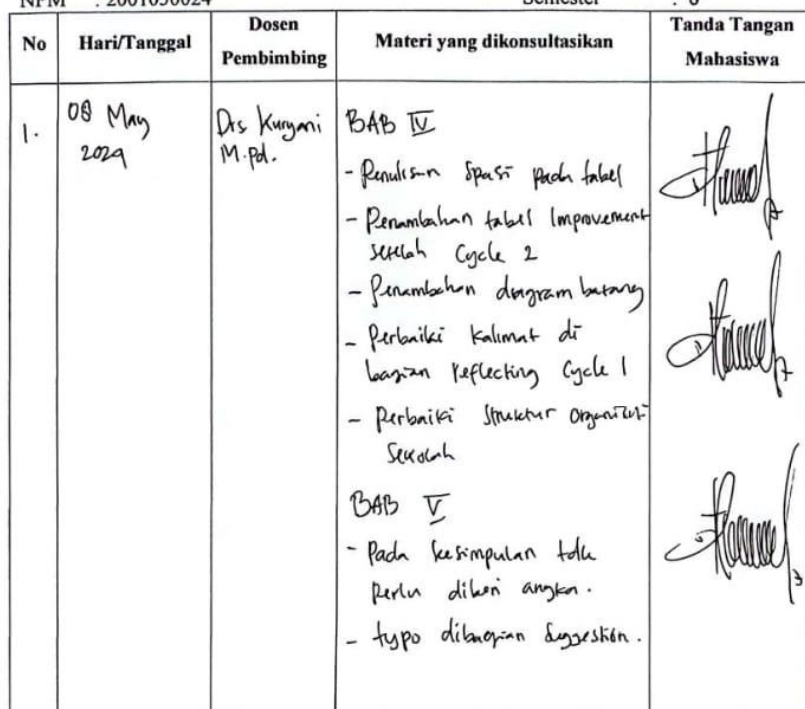 NPM : 2001050024 Semester : 8
No Hari/Tanggal Dosen Pembimbing Materi yang dikonsultasikan Tanda Tangan Mahasiswa
1. 08 May 2024 Drs Kuryani M.Pd.
BAB IV
- Penulisan Spasi pada tabel
- Penambahan tabel Improvement
setelah Cycle 2
- Penambahan diagram batang
- Perbaiki Kalimat di
bagian reflecting Cycle 1
- Perbaiki Struktur Organisasi
Sekolah
BAB V
- Pada kesimpulan tdk
perlu diberi angka.
- typo dibagian Suggestion.